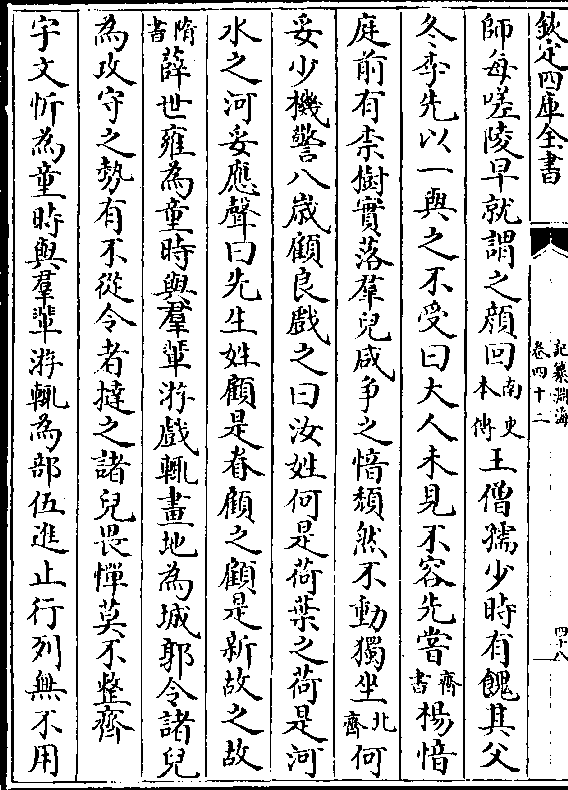 欽定四庫全書
記纂淵海
卷四十二
四十八
師每嗟陵早就謂之顔回南史本傳王僧孺少時有餽其父
冬李先以一與之不受曰大人未見不容先嘗齊書楊愔
庭前有柰樹實落羣兒咸争之愔頹然不動獨坐北齊何
妥少機警八嵗顧良戲之曰汝姓何是荷葉之荷是河
水之河妥應聲曰先生姓顧是眷顧之顧是新故之故
隋書薛世雄為童時與羣輩游戲輒畫地為城郭令諸兒
為攻守之勢有不從令者撻之諸兒畏憚莫不整齊
宇文忻為童時與羣輩游輒為部伍進止行列無不用